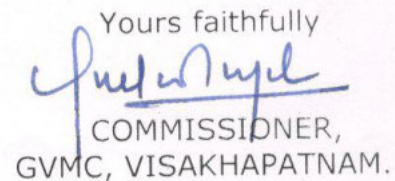 Yours faithfully
COMMISSIONER,
GVMC, VISAKHAPATNAM.